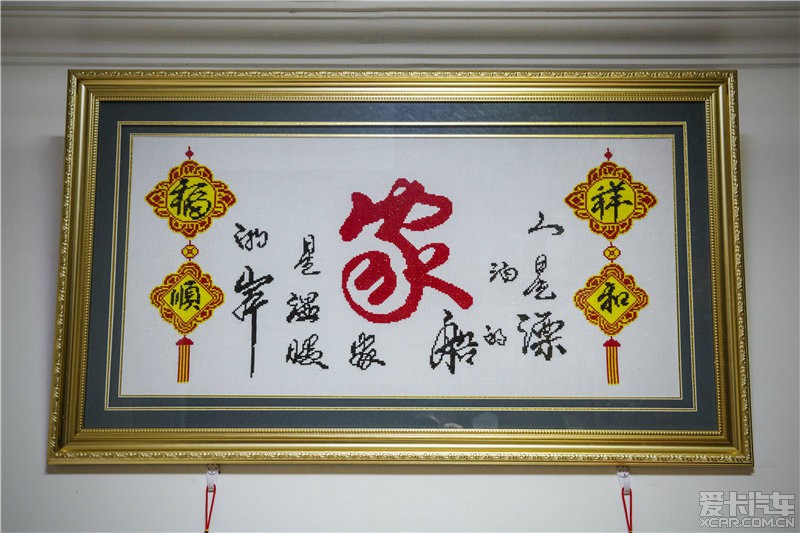 祥
和
人是漂
泊的
船
家
家
是温暖
的岸
福
順
爱卡汽车
XCAR.COM.CN